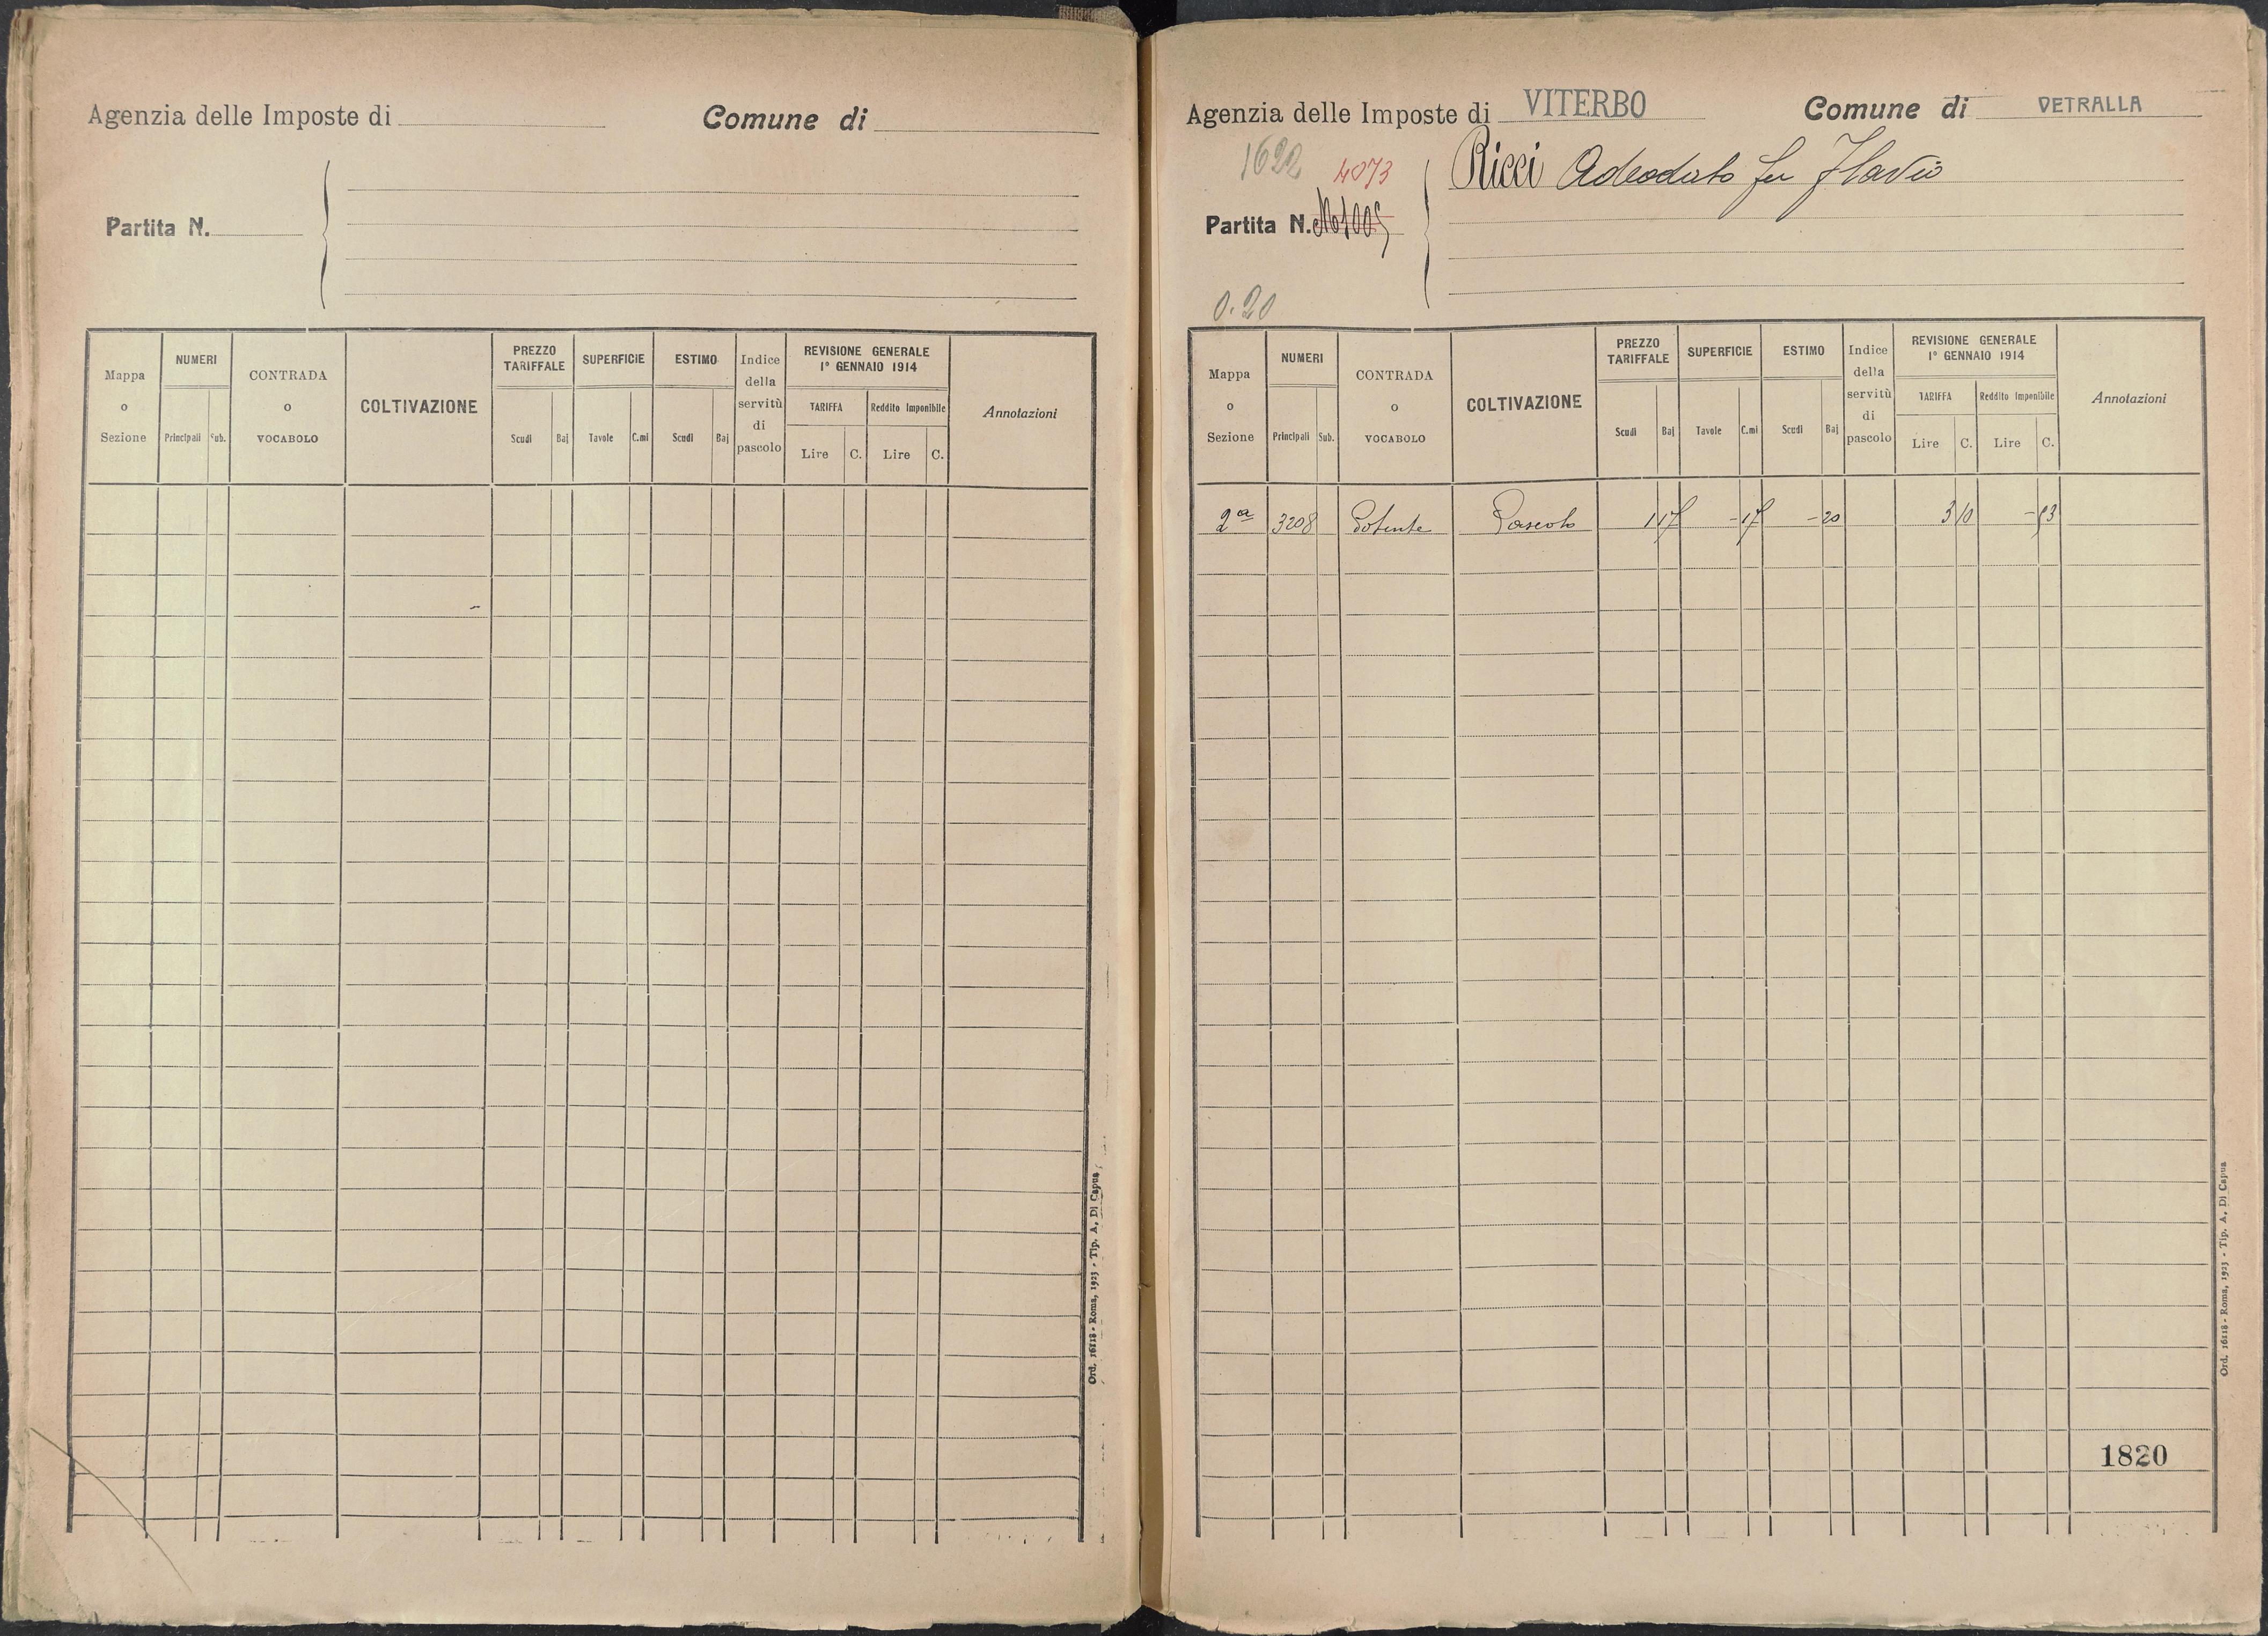 Agenzia delle Imposte di
Comune di
Partita N.
Mappa o Sezione
NUMERI
Principali
Sub.
CONTRADA o VOCABOLO
COLTIVAZIONE
PREZZO TARIFFALE
Scudi
Baj
SUPERFICIE
Tavole
C.mi
ESTIMO
Scudi
Baj
Indice della servitù di pascolo
REVISIONE GENERALE
1° GENNAIO 1914
TARIFFA
Lire
C.
Reddito Imponibile
Lire
C.
Annotazioni
Ord. 16118 - Roma, 1923 - Tip. A. Di Capua
Agenzia delle Imposte di VITERBO
Comune di VETRALLA
1622
4073
Ricci Adeodato fu Flavio
Partita N.
0.20
Mappa o Sezione
NUMERI
Principali
Sub.
CONTRADA o VOCABOLO
COLTIVAZIONE
PREZZO TARIFFALE
Scudi
Baj
SUPERFICIE
Tavole
C.mi
ESTIMO
Scudi
Baj
Indice della servitù di pascolo
REVISIONE GENERALE
1° GENNAIO 1914
TARIFFA
Lire
C.
Reddito Imponibile
Lire
C.
Annotazioni
2a 3208 Potente Pascolo 1 17 - 17 - 20 3 10 - 53
1820
Ord. 16118 - Roma, 1923 - Tip. A. Di Capua